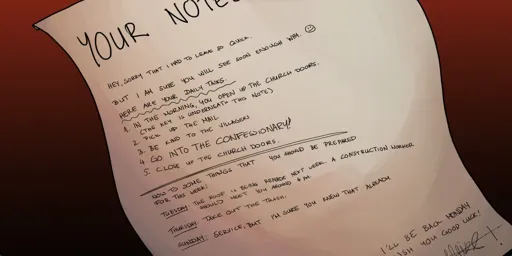 YOUR NOTES
HEY, SORRY THAT I HAD TO LEAVE SO QUICK.
BUT I AM SURE YOU WILL SEE SOON ENOUGH WHY. ☹
HERE ARE YOUR DAILY TASKS:
1. IN THE MORNING, YOU OPEN UP THE CHURCH DOORS.
(THE KEY IS UNDERNEATH THIS NOTE)
2. PICK UP THE MAIL
3. BE KIND TO THE VILLAGERS
4. GO INTO THE CONFESSIONARY!
5. CLOSE UP THE CHURCH DOORS.
NOW TO SOME THINGS THAT YOU SHOULD BE PREPARED
FOR THIS WEEK:
TUESDAY: THE ROOF IS BEING NEXT WEEK. A CONSTRUCTION WORKER
SHOULD MEET YOU AROUND PM.
THURSDAY: TAKE OUT THE TRASH.
SUNDAY: SERVICE, BUT I'M SURE YOU KNEW THAT ALREADY
I'LL BE BACK MONDAY
WISH YOU GOOD LUCK!